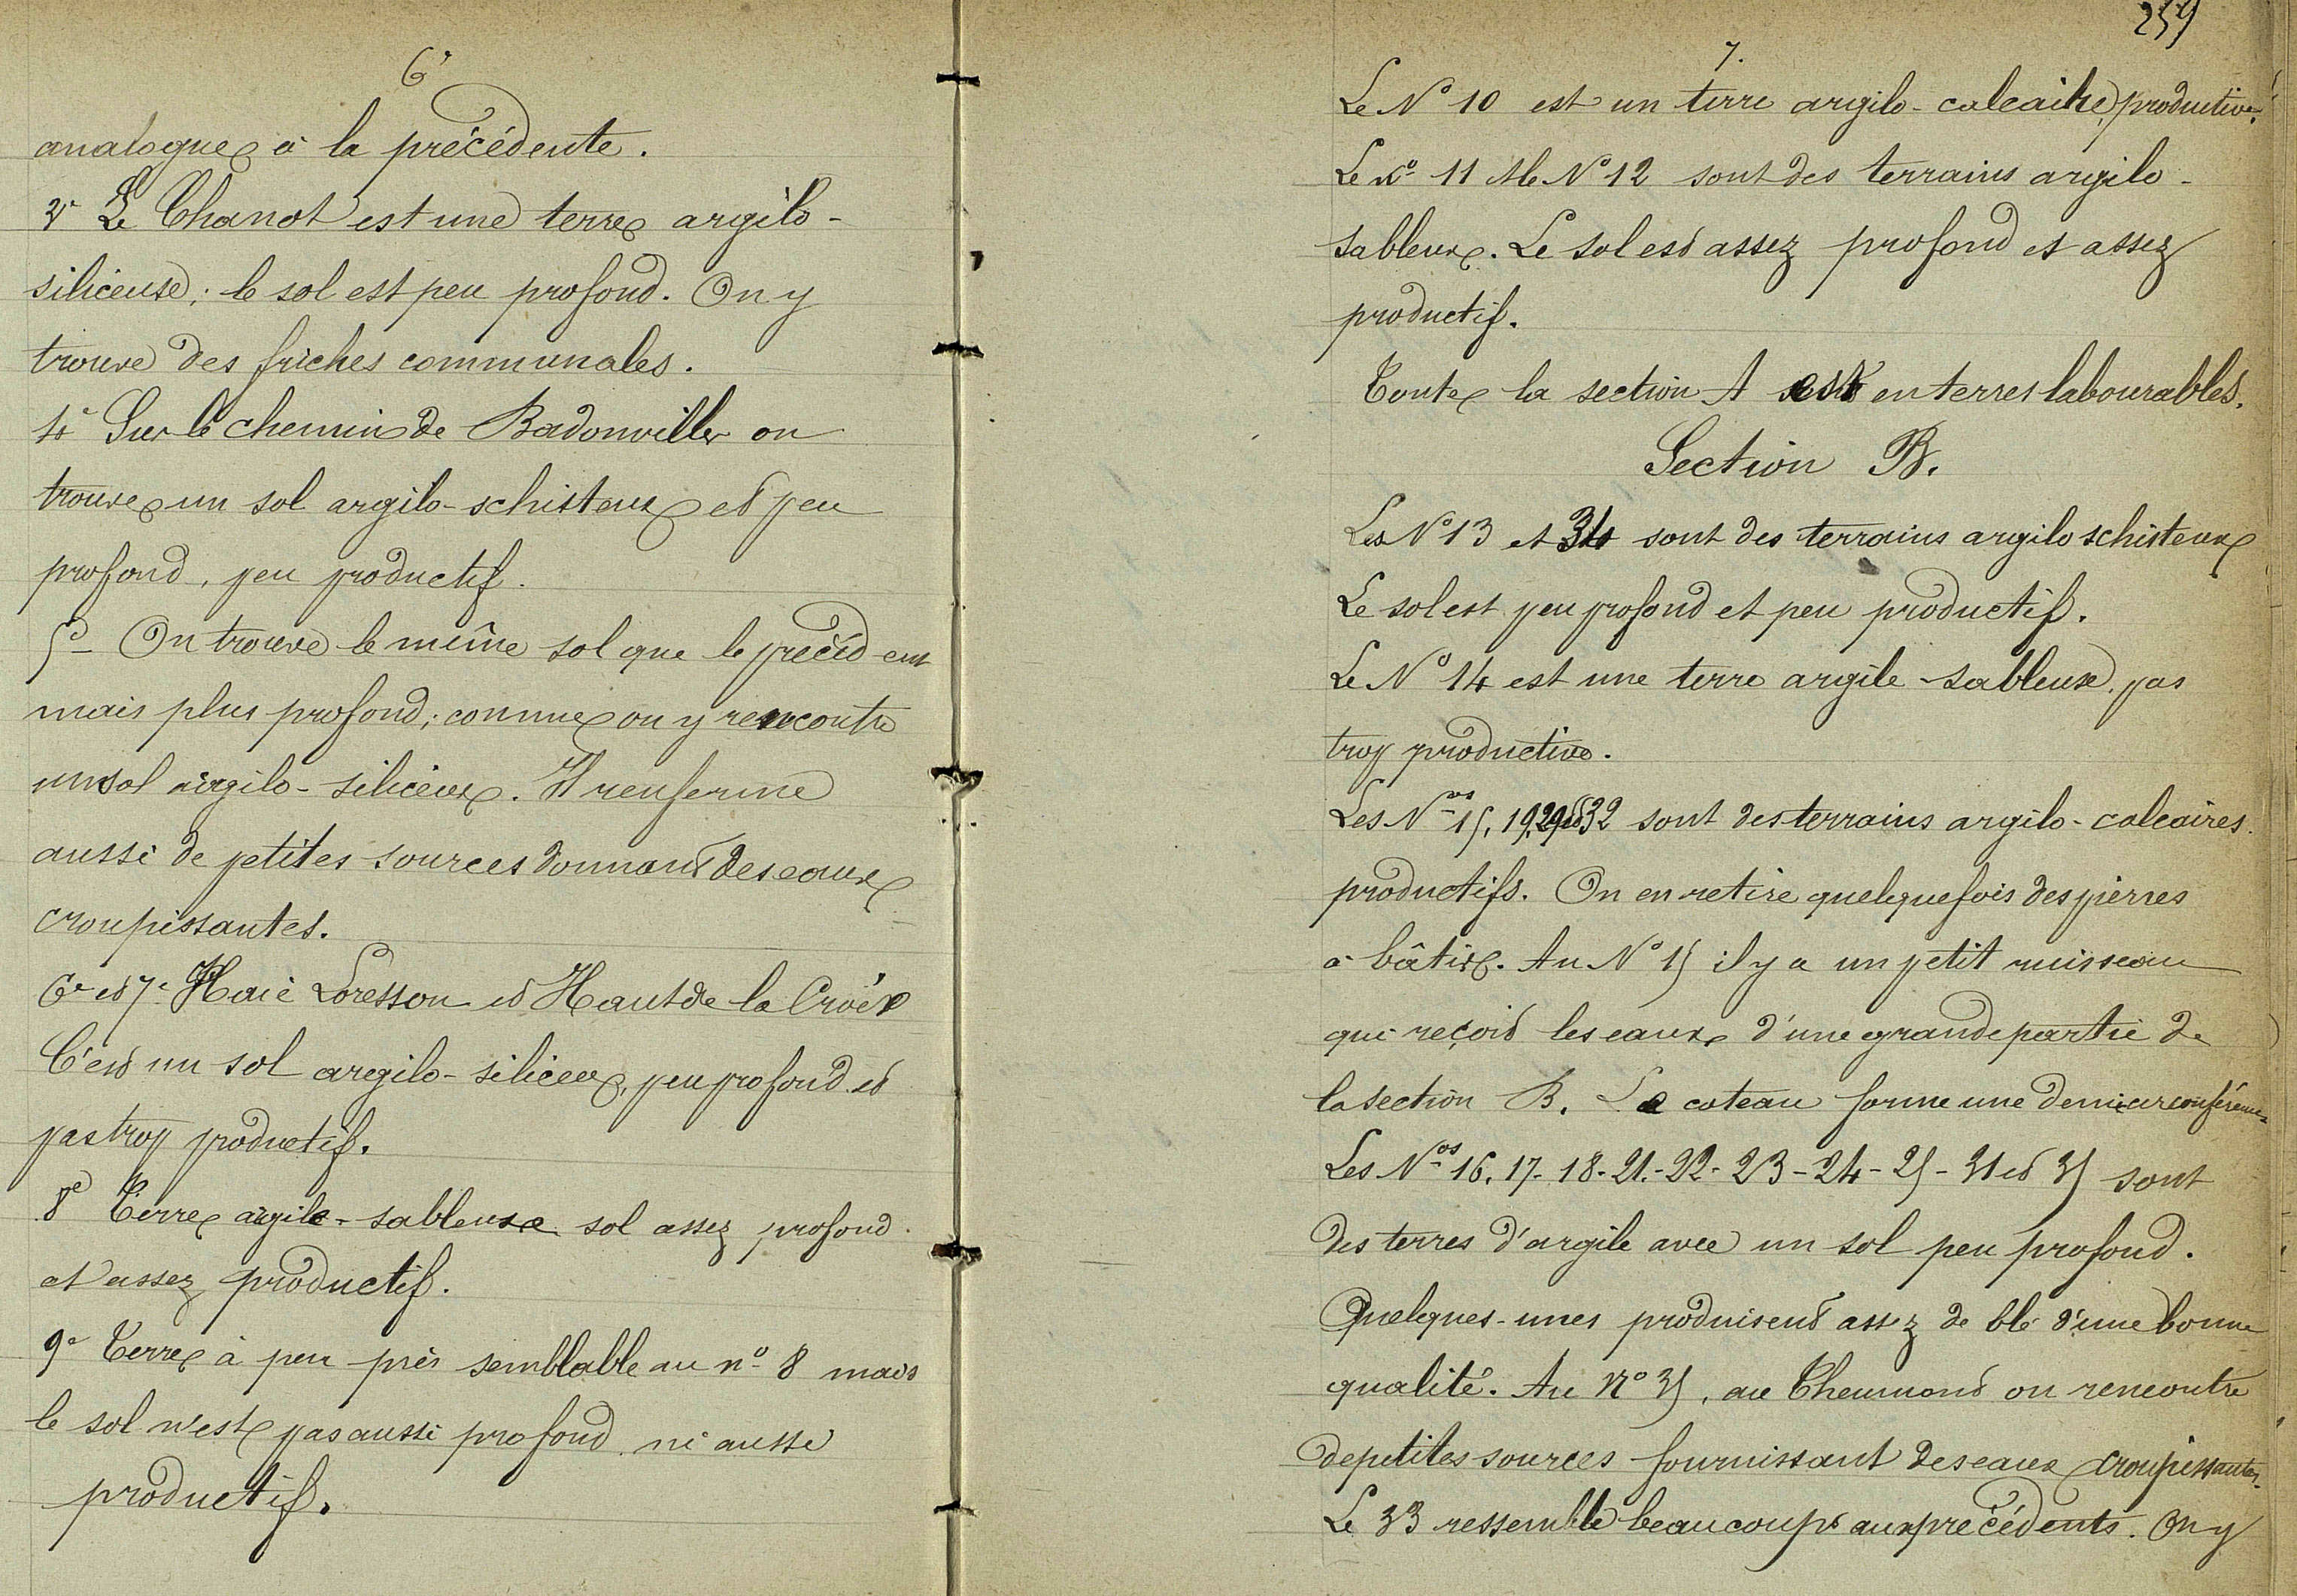 6
analogue à la précédente.
3e Le Chanot est une terre argilo-
siliceuse; le sol est peu profond. On y
trouve des friches communales.
4e Sur le chemin de Badonviller on
trouve un sol argilo-schisteux et peu
profond, peu productif.
5e On trouve le même sol que le précédent
mais plus profond; comme on y rencontre
un sol argilo-siliceux. Il renferme
aussi de petites sources donnant des eaux
croupissantes.
6e et 7e Haie Loresson et Haut de la Croix
C'est un sol argilo-siliceux, peu profond et
pas trop productif.
8e Terre argile-sableuse sol assez profond
et assez productif.
9e Terre à peu près semblable au no 8 mais
le sol n'est pas aussi profond ni aussi
productif.
259
7.
Le No 10 est un terre argilo-calcaire, productive.
Le no 11 et le No 12 sont des terrains argilo-
sableux. Le sol est assez profond et assez
productif.
Toute la section A est en terres labourables.
Section B.
Les No 13 et 34 sont des terrains argilo schisteux
Le sol est peu profond et peu productif.
Le No 14 est une terre argile-sableuse, pas
trop productive.
Les Nos 15, 19, 29 et 32 sont des terrains argilo-calcaires.
productifs. On en retire quelquefois des pierres
à bâtir. Au No 15 il y a un petit ruisseau
qui reçoit les eaux d'une grande partie de
la section B. Le coteau forme une demi circonférence
Les Nos 16. 17- 18- 21.- 22- 23- 24- 25- 31 et 35 sont
des terres d'argile avec un sol peu profond.
Quelques-unes produisent assez de blé d'une bonne
qualité. Au No 35, au Cheumont on rencontre
de petites sources fournissant des eaux croupissantes.
Le 33 ressemble beaucoup aux précédents. On y